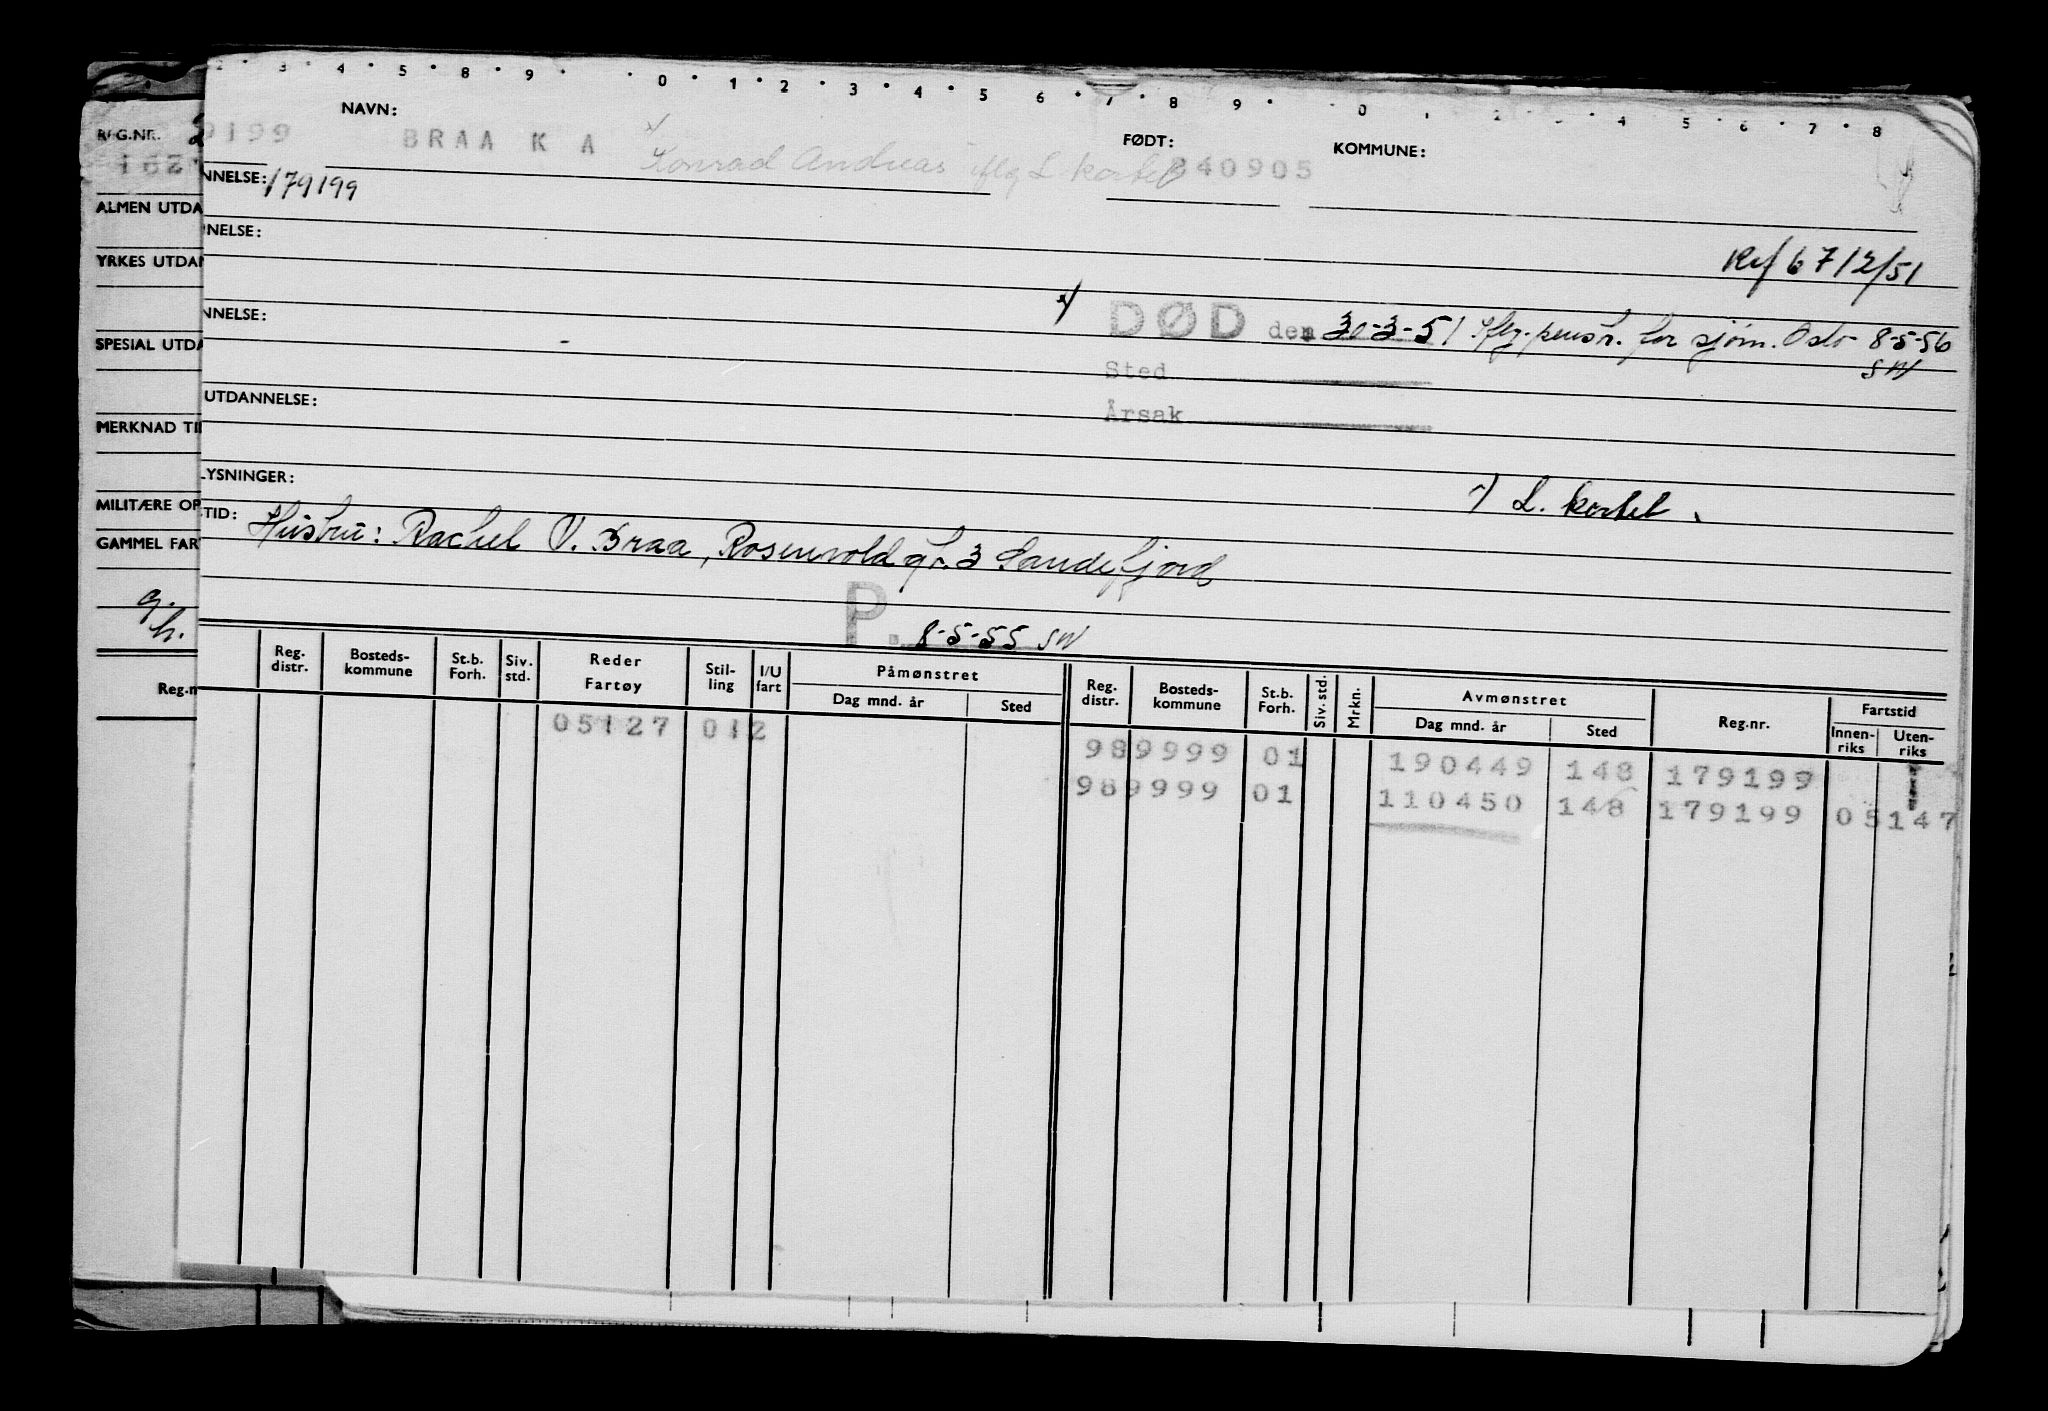 2 · 3 · 4 · 5 · 8 · 9 · · 0 · 1 · 2 · 3 · 4 · 5 6 · 7 · 8 9 · · 0 2 · 4 · 5 · 6 · 7 · 8
REG.NR. 9199 NAVN: BRAA K A Konrad Andreas iflg L kortet FØDT: 040905 KOMMUNE:
162
NNELSE: 179199
ALMEN UTDA
NNELSE:
YRKES UTDAN
Ref 6712/51
NNELSE:
DØD den 30-3-51 Iflg. penstr. for sjøm. Oslo 8-5-56
SW
SPESIAL UTDA
Sted
UTDANNELSE:
Årsak
MERKNAD TI
LYSNINGER:
MILITÆRE OP
L. kortet.
TID: Hustru: Rachel V. Braa, Rosenvold gt. 3 Sandefjord
GAMMEL FAR
g.
h.
P. 8-5-55 SW
Reg.n
Reg. distr. Bosteds-kommune St.b. Forh. Siv. std. Reder Fartøy Stil-ling I/U fart Påmønstret Dag mnd. år Sted Reg. distr. Bosteds-kommune St.b. Forh. Siv. std. Mrkn. Avmønstret Dag mnd. år Sted Reg.nr. Fartstid Innen-riks Uten-riks
05127 012
989999 01 190449 148 179199
989999 01 110450 148 179199 05147